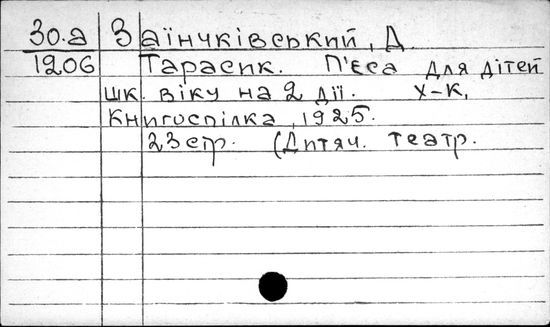 30.а Заїнчківський, Д.
1206 Тарасик. П'єса для дітей
шк. віку на 2 дії. Х-К,
Книгоспілка, 1925.
23 стр. (Дитяч. театр.